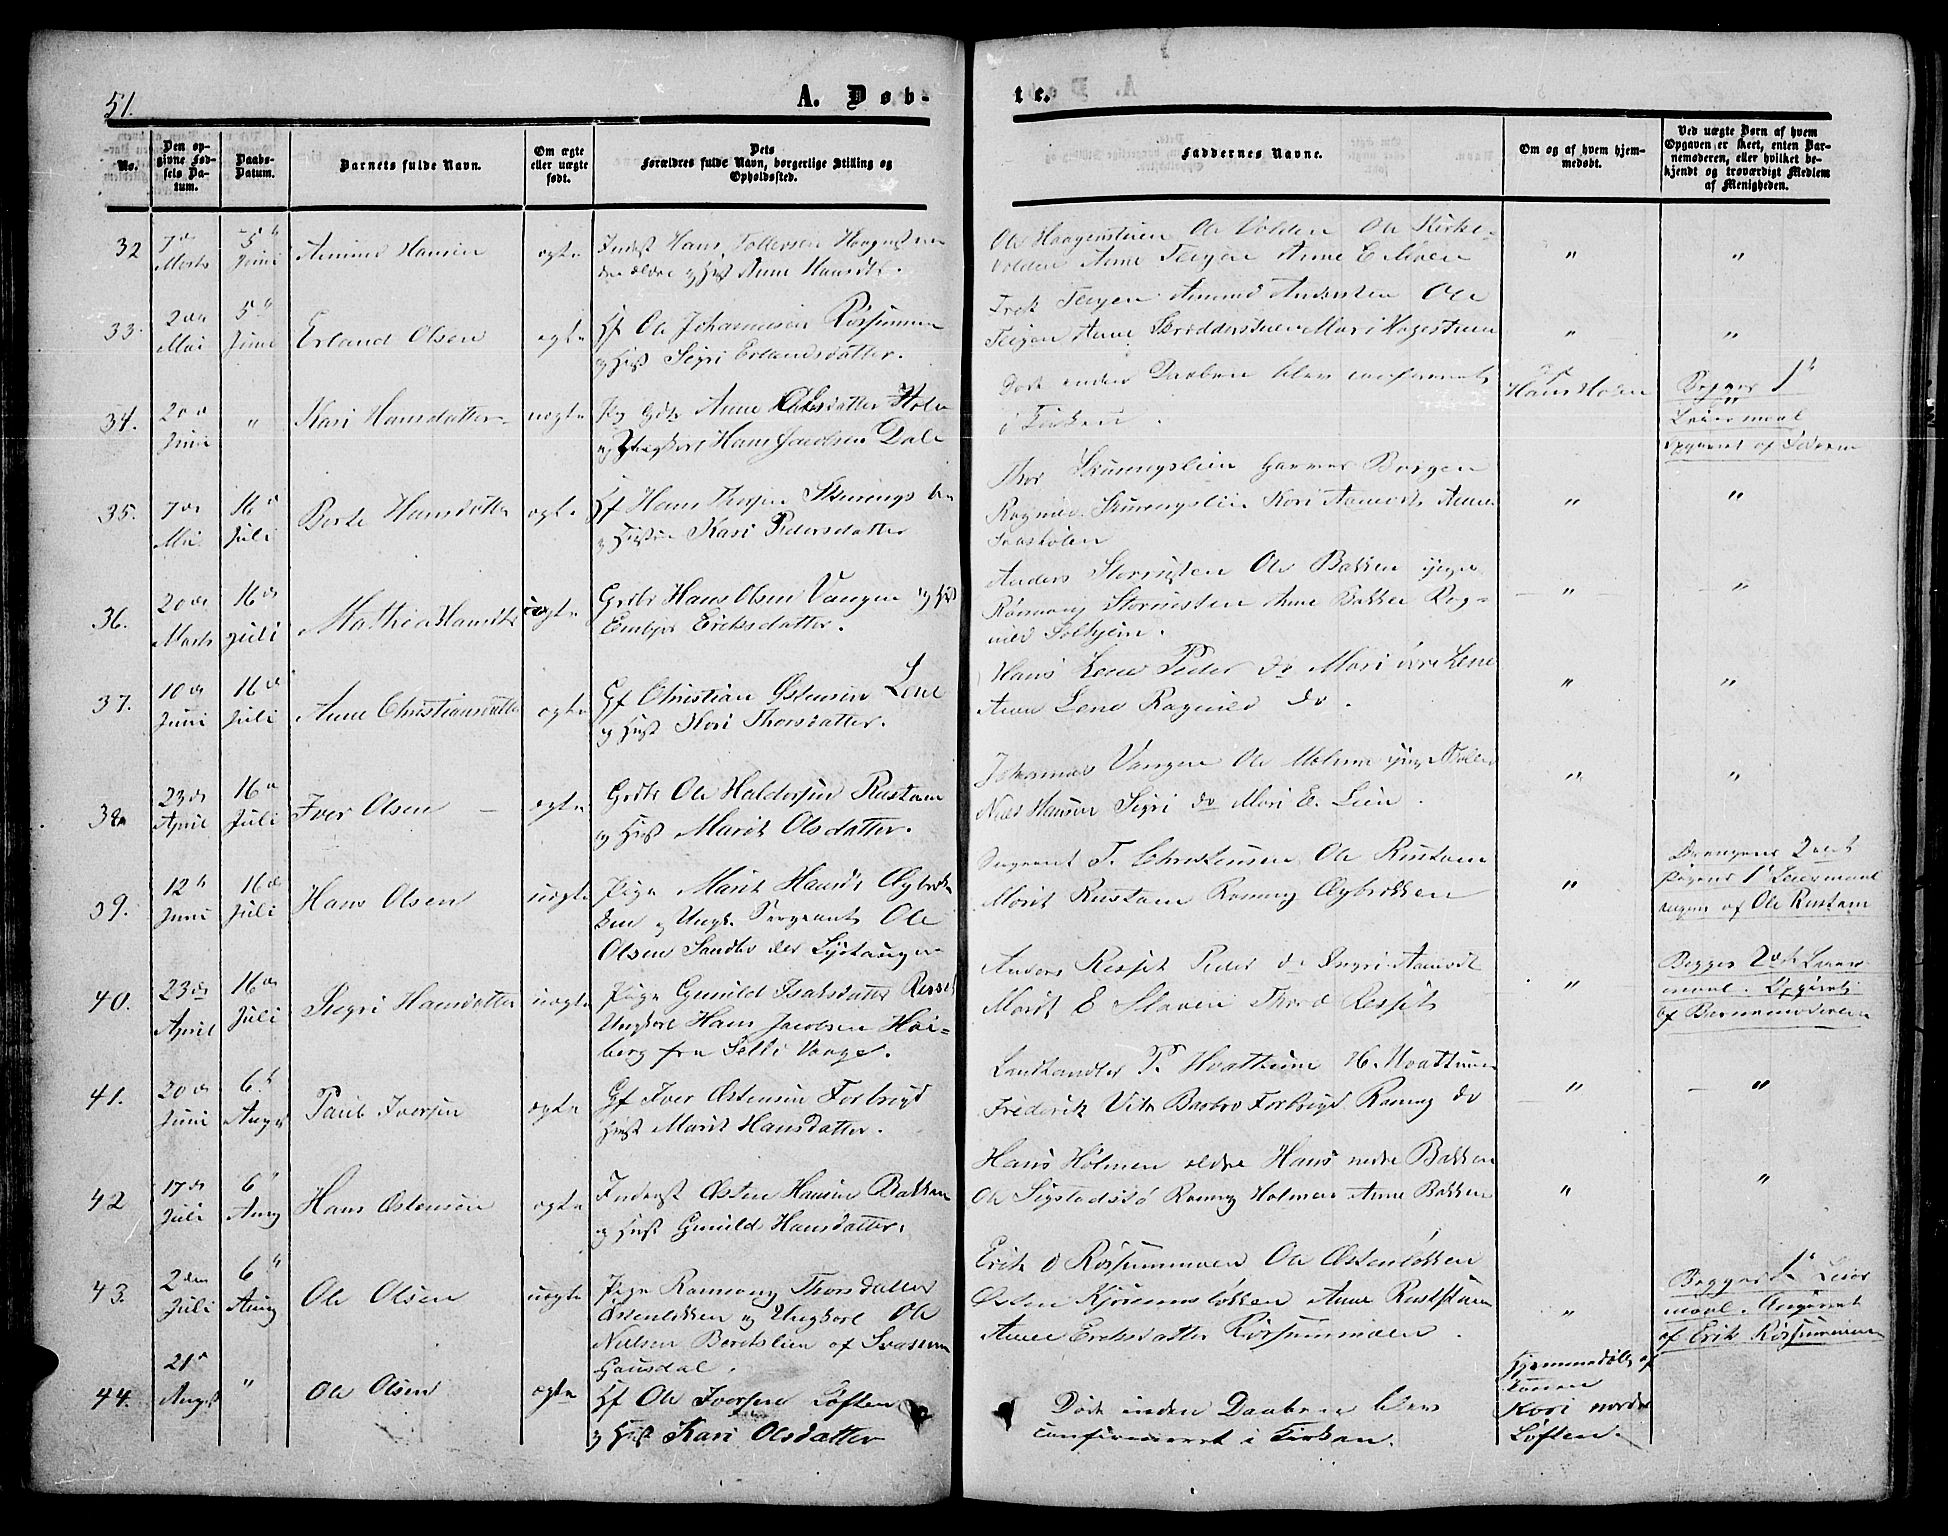 51.
A. Døb-
te.
No.
Den op-
givne Fød-
sels Da-
tum.
Daabs-
Datum.
Barnets fulde Navn.
Om ægte
eller uægte
født.
Dets
Forældres fulde Navn, borgerlige Stilling og
Opholdssted.
Faddernes Navne.
Om og af hvem hjem-
medøbt.
Ved uægte Børn af hvem
Opgaven er skeet, enten Bar-
nemoderen, eller hvilket be-
kjendt og troværdigt Medlem
af Menigheden.
32
7de
Marts
5te
Juni
Hansen
ægte
Inderst Hans Tollefsen
ældre og Hust Anne Hansdtr.
Ole Haagenstuen Ole Volden Ole Kirke-
volden Anne Teigen Anne E. Moen
"
"
33.
2den
Mai
5te
Juni
Erland Olsen
ægte
Gf Ole Johannesen Rørsummoen
og Hust Sigri Erlandsdatter.
Teigen Amund Andersten Ole
Teigen Anne Skrædderstuen Mari Hagestuen
"
"
34.
20de
Juni
"
Kari Hansdatter
uægte
Pig Gdb Anne Olsdatter Holen
og Ungkarl Hans Jacobsen Dale
Døde uden Daaben blev confirmert
i Kirken.
Hans Holen
Begges 1ste
Leiermaal
Opgivet af Faderen
35.
7de
Mai
16de
Juli
Berte Hansdatter
ægte
Gf Hans Thorsen
og Hustru Kari Pedersdatter
Thor Skurungslien
Ragnild Skurungslien Kari Aamodt Anne
"
"
36.
20de
Marts
16de
Juli
Mathia Hansdtr
ægte
Grdb Hans Olsen Vangen og Hust
Embjør Eriksdatter.
Anders Storrusten Ole Bakken yngre
Rønnaug Storrusten Anne Bakken Rag-
nild Solhjem.
"
"
37.
10de
Juni
16de
Juli
Anne Christiansdatter
ægte
Gf Christian Østensen Lene
og Hust Kari Thorsdatter.
Hans Lene Peder do Mari øvre Lene
Anne Lene Ragnild do.
"
"
38.
23de
April
16de
Juli
Iver Olsen
ægte
Grdb Ole Haldorsen Rustam
og Hust Marit Olsdatter.
Johannes Vangen Ole Molmen yngre
Niels Hansen Sigri do Mari E. Lien.
"
"
39.
12te
Juni
16de
Juli
Hans Olsen
uægte
Pige Marit Hansdtr Øybrek-
ken og Ungk. Sergeant Ole
Olsen Sandbo
Sergeant T. Christensen Ole Rustam
Marit Rustam Rønnaug Øybrekken
"
Drengens 2det
Pigens 1ste Leiermaal
af Ole Rustam
40.
23de
April
16de
Juli
Sigri Hansdatter
uægte
Pige Gunild Isaksdatter Resset
Ungkarl Hans Jacobsen Høi-
berg fra Selli Vaage.
Anders Resset Peder do Ingri Aamodt
Marit E Slaaen Thord Resset
"
Begges 2det Leier-
maal. Opgivet
af Barnemoderen
41.
20de
Juni
6te
August
Paul Iversen
ægte
Gf Iver Østensen Forbrigd
Hust Marit Hansdatter.
Landhandler P. Hvattum H. Hvattum
Frederik Barbro Forbrigd Rønnaug do
"
"
42
17de
Juli
6te
Aug
Hans Østensen
ægte
Inderst Østen Hansen Bakken
og Hust Gunild Hansdatter.
Hans Holmen ældre Hans nedre Bakken
Ole Sigstadsø Rønnaug Holmen Anne Bakken
"
"
43.
2den
Juli
6te
Aug
Ole Olsen
uægte
Pige Rønnaug Thorsdatter
Østenløkken og Ungkarl Ole
Nielsen Berithslien af
Gausdal.
Erik O Rørsummoen Ole Østenløkken
Østen Kjørremsløkken Anne Rustjtuen
Anne Eriksdatter Rørsummoen.
"
Begges 1ste Leier-
maal. Angivet
af Erik Rørsummoen
44.
21de
August
"
Ole Olsen
ægte
Gf Ole Iversen Løften
og Hust Kari Olsdatter
Døde inden Daaben blev
confirmeret i Kirken.
Hjemmedøbt af
Konen
Kari nordre
Løften.